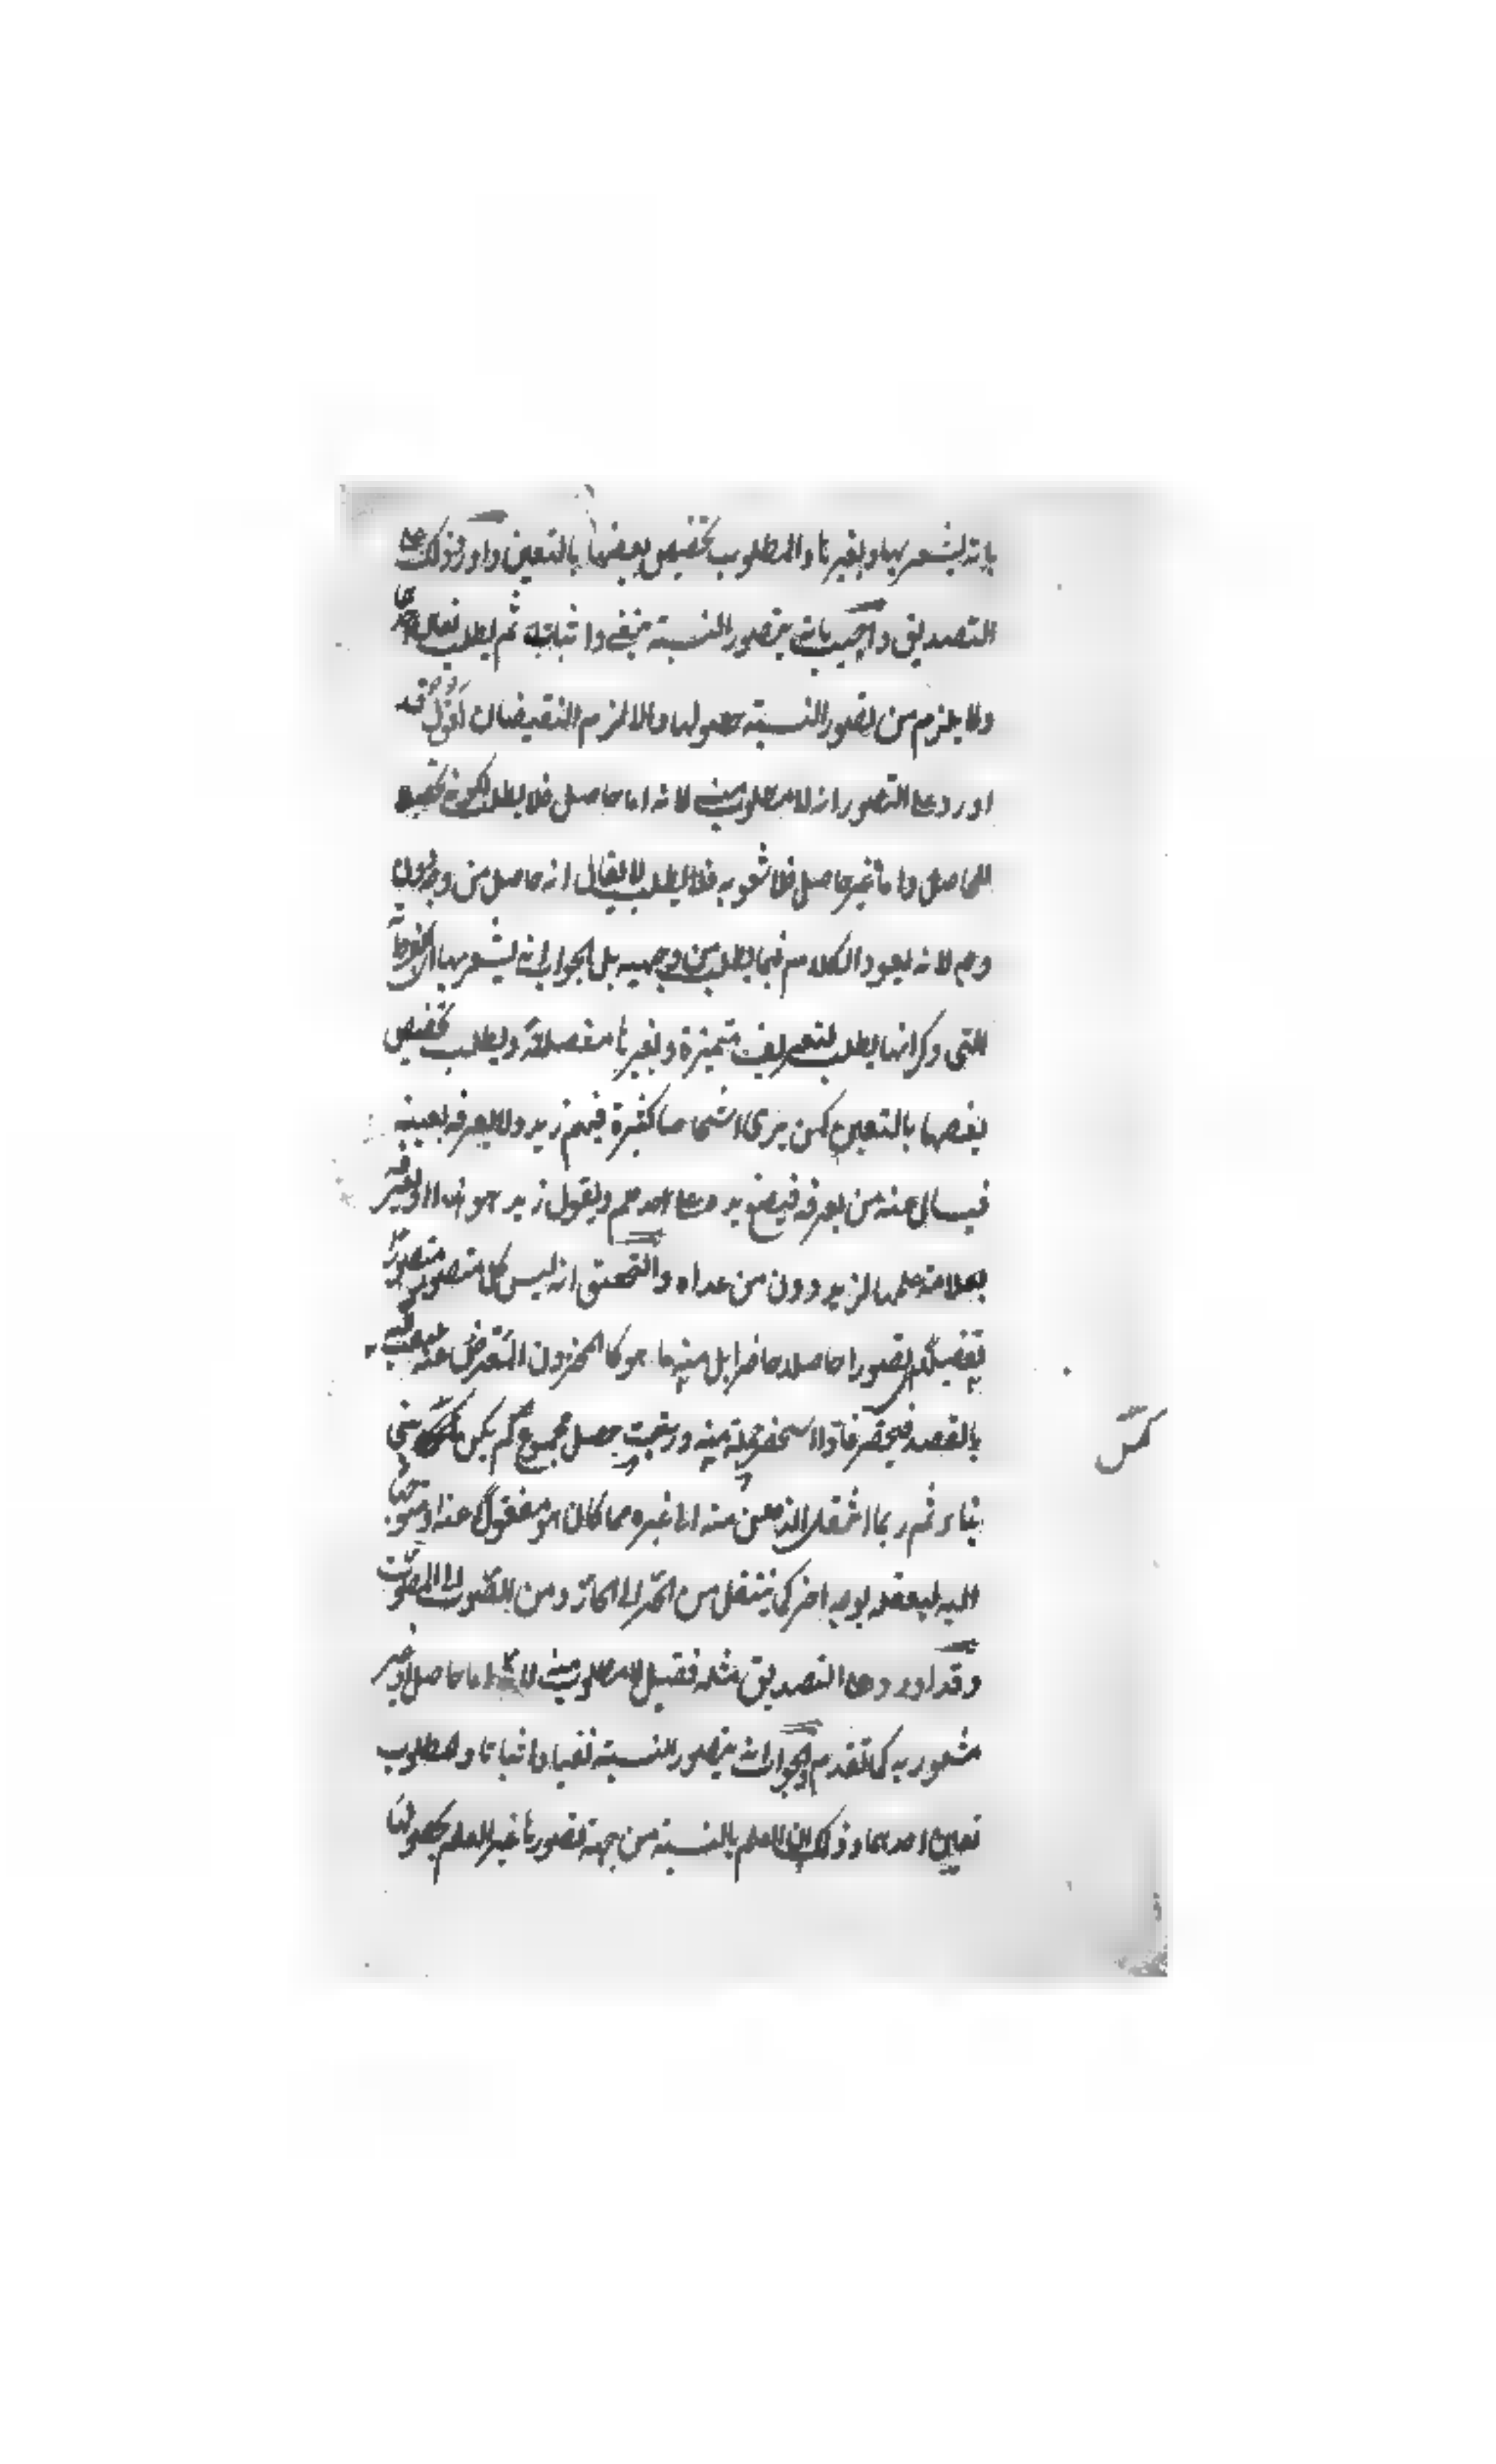 بانه يشعر بها وبغيرها والمطلوب تخصيص بعضها بالتعين واورد ذلك على
التصديق واجيب بانه يتصور النسبة بنفي واثبات ثم يطلب تعين احدهما
ولا يلزم من تصور النسبة حصولها والا لزم النقيضان اقول قد
اورد على التصور انه لا مطلوب منه لانه اما حاصل فلا يطلب لكونه تحصيلا
للحاصل واما غير حاصل فلا شعور به فلا يطلب لا يقال انه حاصل من وجه دون
وجه لانه يعود الكلام فيما يطلب من وجهيه بل الجواب انه يشعر بها اى
التى ذكر انها يطلب لتعريف متميزة وبغيرها مفصلة ويطلب تخصيص
بعضها بالتعين كمن يرى اشخاصا كثيرة فيهم زيد ولا يعرفه بعينه
فيسال عنه من يعرفه فيضع يده على احد منهم ويقول زيد هو هذا او يخبر
بعلامة علمها لزيد دون من عداه والتحقيق انه ليس كل متصور متصورا
تفصيلا تصورا حاصلا حاضرا بل منها ما هو كالمخزون المعرض عنه
بالقصد فيحضر فاذا استحضر جملة منه ورتبت حصل مجموع لم يكن
بناء ثم ربما انتقل الذهن منه الى غيره مما كان هو مغفولا عنه او متوجها
اليه ليعقله بوجه اخر كما ينتقل من الى ومن الى
وقد اورد على التصديق مثله فقيل لا مطلوب منه لانه اما حاصل او غير
مشعور به كما تقدم والجواب انه يتصور النسبة نفيا واثباتا والمطلوب
تعين احدهما وذلك لان العلم بالنسبة من جهة تصورها غير العلم بحصولها